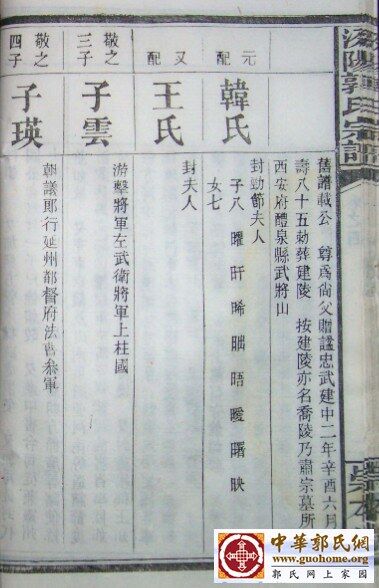 汾陽郭氏宗譜
舊譜載公尊爲尚父贈諡忠武建中二年辛酉六月
壽八十五勑葬建陵按建陵亦名喬陵乃肅宗墓所
西安府醴泉縣武將山
元配
韓氏
封勁節夫人
子八 曜 旰 晞 昢 晤 曖 曙 映
女七
又配
王氏
封夫人
敬之
三子
子雲
游擊將軍左武衛將軍上柱國
敬之
四子
子瑛
朝議郎行延州都督府法曹叅軍
中華郭氏網
www.guohome.org
郭氏网上家园